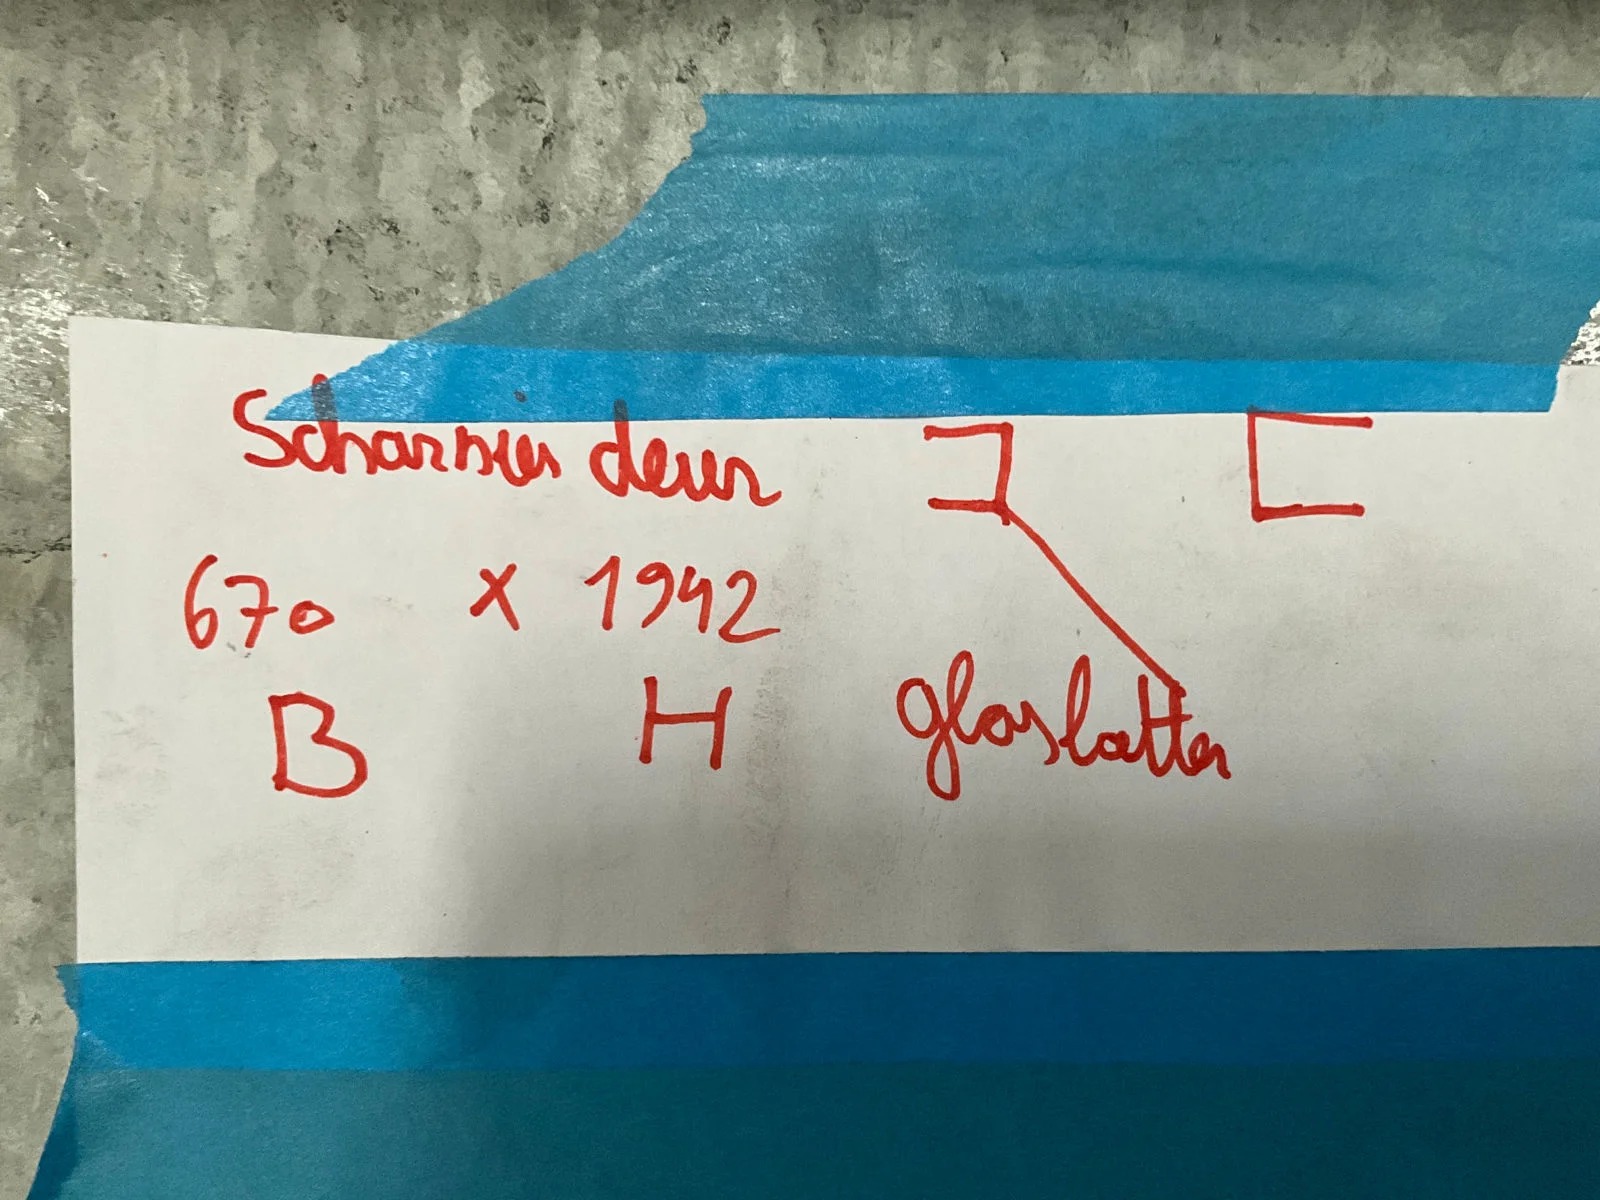 Scharnier deur
670 x 1942
B H
glaslatten